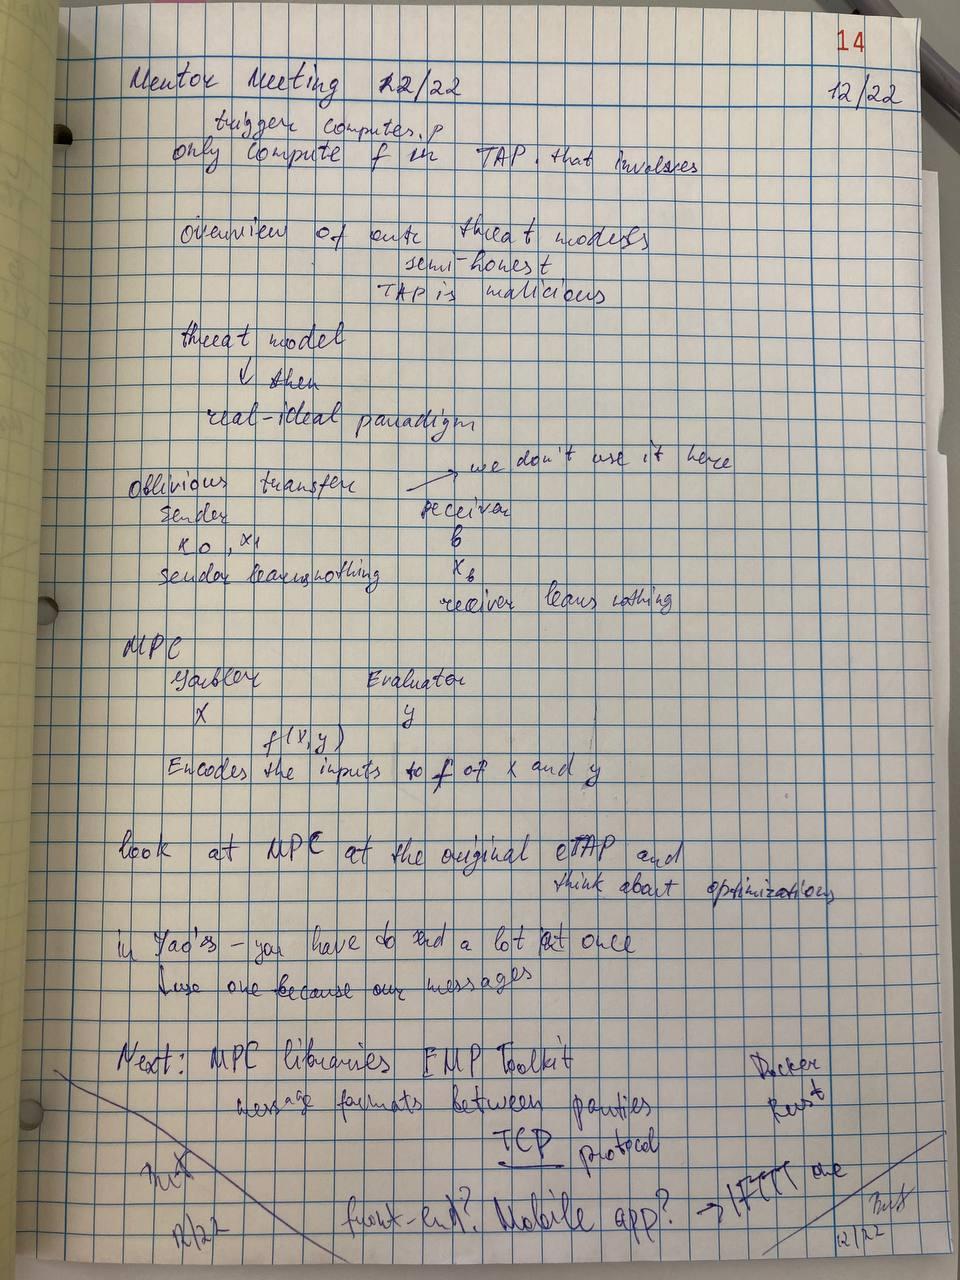 14
Mentor Meeting 12/22 12/22
trigger computes.p
only compute f in TAP. that involves
overview of our threat models
semi-honest
TAP is malicious
threat model
↓ then
real-ideal paradigm
Oblivious transfer → we don't use it here
Sender receiver
x0, x1 b
sender learns nothing xb
receiver leans nothing
MPC
Garbler Evaluator
x y
f(x,y)
Encodes the inputs to f of x and y
look at MPC at the original eTAP and
think about optimizations
in Yao's - you have to send a lot at once
use one because our messages
Next: MPC libraries EMP Toolkit Docker
message formats between parties Rust
TCP protocol
front-end? Mobile app? → IFTTT one
12/22 12/22